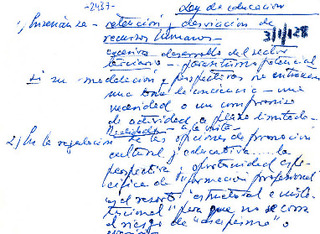 -2437- Ley de educación
1) Enseñanza - retención y desviación de
recursos humanos - 3/1/128
excesivo desarrollo del sector
terciario - parasitismo potencial
si su modelación y perspectivas no entrañan
una toma de conciencia - una
necesidad o un compromiso
de actividad a plazo limitado -
2) En la regulación de las opciones de formación
cultural y educativa.... la
perspectiva y oportunidad espe-
cífica de "formación profesional
es el resorte "estructural e insti-
tucional" para que no se corra
el riesgo de "escapismo" o